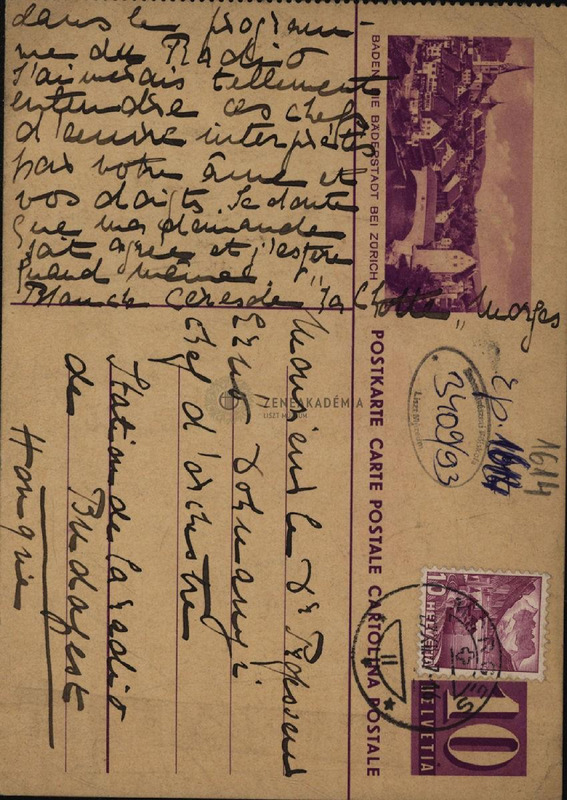 dans le program-
me du Radio
J'aimerais tellement
entendre ces chefs
d'œuvre interprétés
par votre âme et
vos doigts. Je doute
que ma demande
soit agréée et j'espère
quand même !
Blanche "La Chotte" Morges
BADEN DIE BÄDERSTADT BEI ZÜRICH
POSTKARTE CARTE POSTALE CARTOLINA POSTALE
Monsieur le Dr Professeur
Erno Dohnanyi
chef d'orchestre
Station de la radio
de Budapest
Hongrie
ZENEAKADÉMIA
LISZT MÚZEUM
3409/93
1614
10 HELVETIA
11
10
HELVETIA